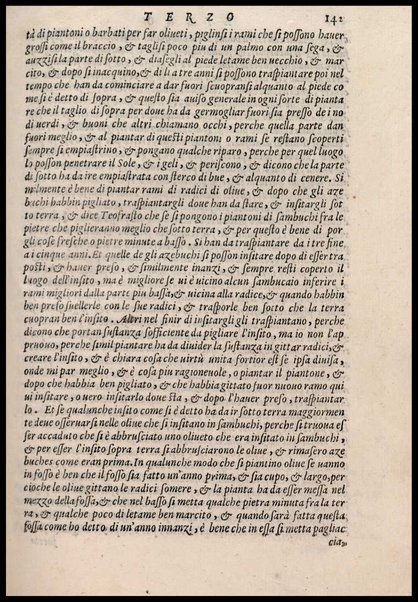 TERZO 142
tà di piantoni o barbati per far oliueti, piglinsi i rami che si possono hauer
grossi come il braccio, & taglisi poco piu di un palmo con una sega, &
auzzisi la parte di sotto, & diasegli al piede letame ben uecchio, & mar
cito, & dopo si inacquino, & di li a tre anni si possono traspiantare poi nel
tempo che han da cominciare a dar fuori scauopransi alquanto al piede co
me si è detto di sopra, & questo sia auiso general e in ogni sorte di pianta
re che il taglio di sopra per doue ha da germogliar fuori sia presso de i no
di uerdi, & buoni che altri chiamano occhi, perche quella parte dan
fuori meglio, & al piantar di questi piantoni o rami se restano scoperti
sempre si empiastrino, & pongano qualche riparo, perche per quel luogo
lo posson penetrare il Sole, & i geli, & periscono, & dicono che la parte
di sotto ha da ire empiastrata con sterco di bue, & alquanto di cenere. Si
milmente è bene di piantar rami di radici di oliue, & dopo che gli aze
buchi habbin pigliato, traspiantargli doue han da stare, & insitargli sot
to terra, & dice Teofrasto che se si pongono i piantoni di sambuchi fra le
pietre che piglieranno meglio che sotto terra, & per questo è bene di por
gli cose fresche o pietre minute a basso. Si han da traspiantare da i tre fine
a i cinque anni. Et quelle de gli azebuchi si possono insitare dopo di esser tra
posti, & hauer preso, & similmente inanzi, & sempre resti coperto il
luogo dell'insito, ma è migliore se ui è uicino alcun sambucaio inferire i
rami migliori dalla parte piu bassa, & uicina alla radice, & quando habbin
ben preso suellerle con le sue radici, & trasporle ben sotto che la terra
cuopran ben l'insito. Altri nel finir di insitargli gli traspiantano, perche
dicono che portan sustanza sofficiente da pigliare l'insito, ma io non l'ap
pruouo, perche simil piantare ha da diuider la sustanza in gittar radici, &
creare l'insito, & è chiara cosa che uirtù unita fortior est se ipsa diuisa,
onde mi par meglio, & è cosa piu ragioneuole, o piantar il piantone, &
dopo che habbia ben pigliato, & che habbia gittato fuor nuouo ramo qui
ui insitare, o uero insitarlo doue sta, & dopo l'hauer preso, traspiantar
lo. Et se qualunche insito come si è detto ha da ir sotto terra maggiormen
te deue osseruarsi nelle oliue che si insitano in sambuchi, perche si truoua es
ser accaduto che si è abbrusciato uno oliueto che era insitato in sambuchi,
& per esser l'insito sopra terra si abbrusciarono le oliue, & rimasero aze
buches come eran prima. In qualunche modo che si piantino oliue se uanno
in fosso è ben che il fosso sia fatto un'anno prima, & sia cupo, & largo, per
cioche le oliue gittano le radici somere, & la pianta ha da esser messa nel
mezzo della fossa, & che nel basso si metta qualche pietra minuta fra la ter
ra, & qualche poco di letame ben marcito, & quando sarà fatta questa
fossa come ho detto di un'anno innanzi, è bene che in essa si metta pagliac
cia,